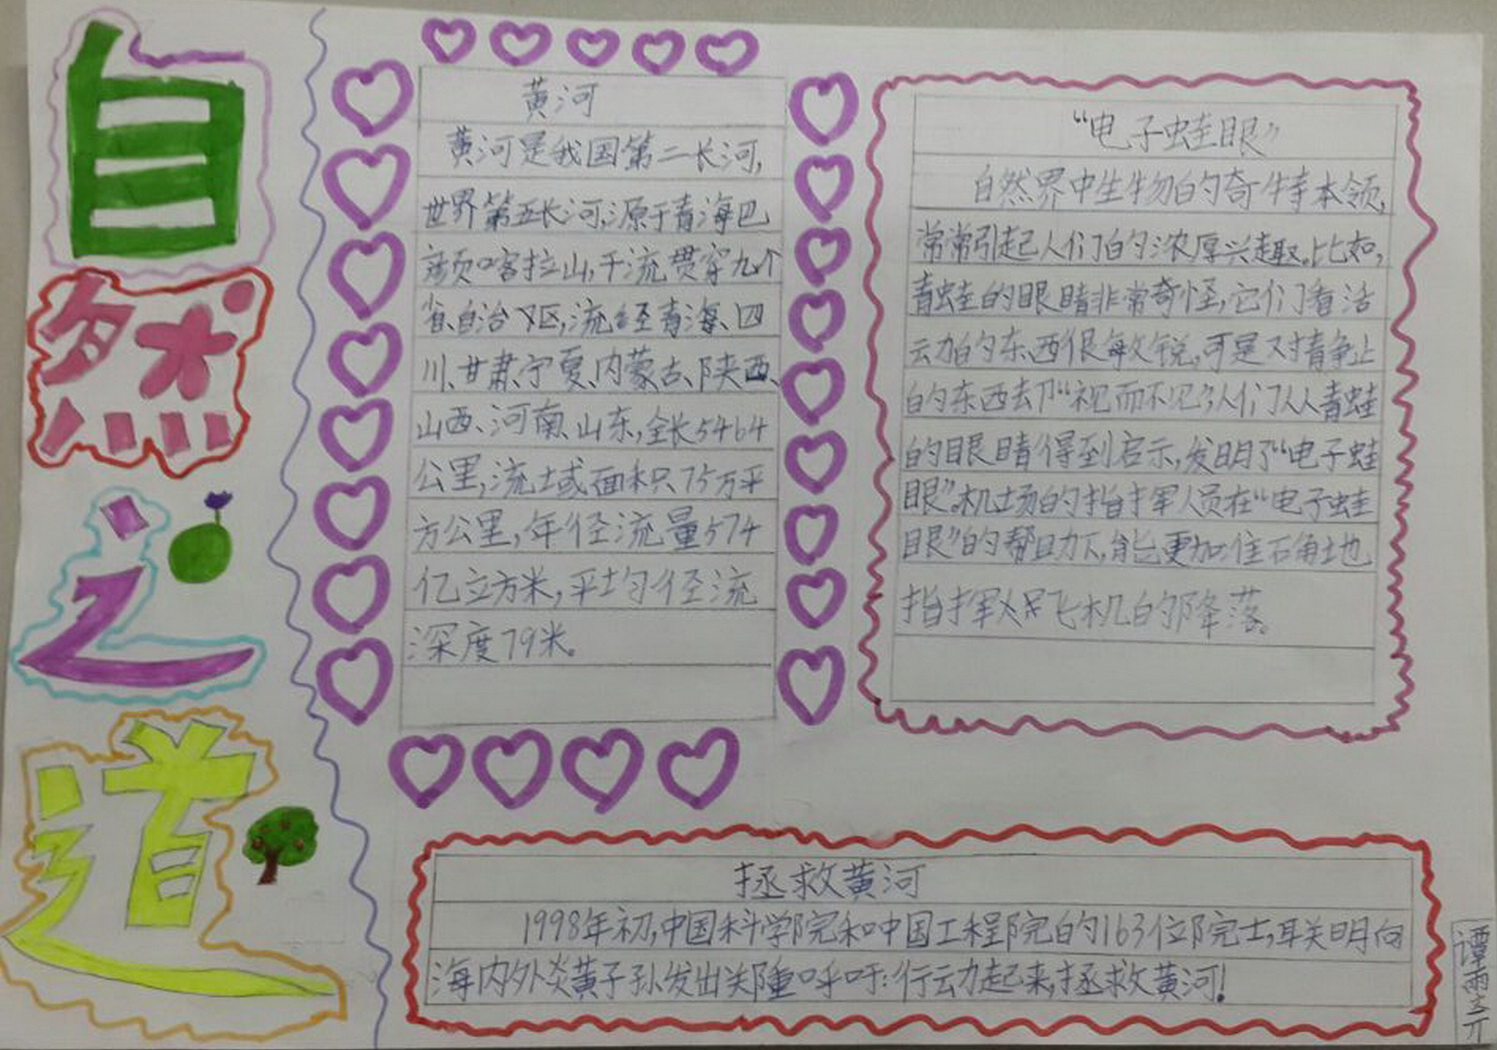 自然之道
黄河
黄河是我国第二长河,
世界第五长河,源于青海巴
颜喀拉山,干流贯穿九个
省、自治区,流经青海、四
川、甘肃、宁夏、内蒙古、陕西、
山西、河南、山东,全长5464
公里,流域面积75万平
方公里,年径流量574
亿立方米,平均径流
深度79米。
“电子蛙眼”
自然界中生物的奇特本领,
常常引起人们的浓厚兴趣。比如,
青蛙的眼睛非常奇怪,它们看活
动的东西很敏锐,可是对静止
的东西却“视而不见”。人们从青蛙
的眼睛得到启示,发明了“电子蛙
眼”。机场的指挥人员在“电子蛙
眼”的帮助下,能更加准确地
指挥飞机的降落。
拯救黄河
1998年初,中国科学院和中国工程院的163位院士,联名向
海内外炎黄子孙发出郑重呼吁:行动起来,拯救黄河!
谭雨